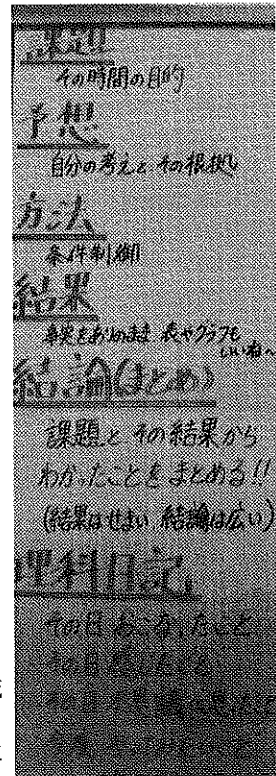 課題
その時間の目的
予想
自分の考えと その根拠
方法
条件制御
結果
事実をありのまま 表やグラフも
いいね〜
結論(まとめ)
課題と その結果から
わかったことを まとめる!!
(結果はせまい 結論は広い)
理科日記
その日おこなったこと